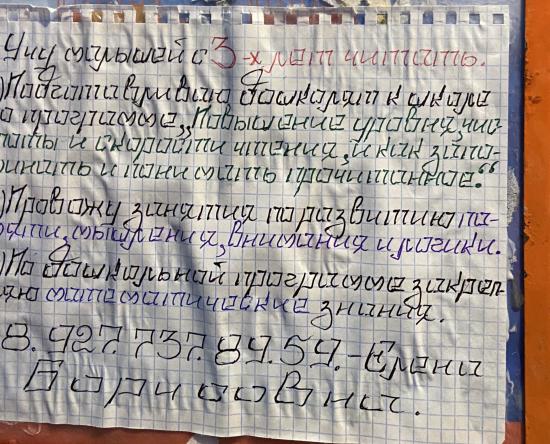 Учу малышей с 3-х лет читать.
)Подготавливаю дошколят к школе
о программе „Повышение уровня, чис-
тоты и скорости чтения, и как запо-
минать и понимать прочитанное.“
)Провожу занятия по развитию па-
мяти, мышления, внимания и логики.
)По дошкольной программе закреп-
ляю математические знания.
8.927.737.89.59.-Елена
Борисовна.